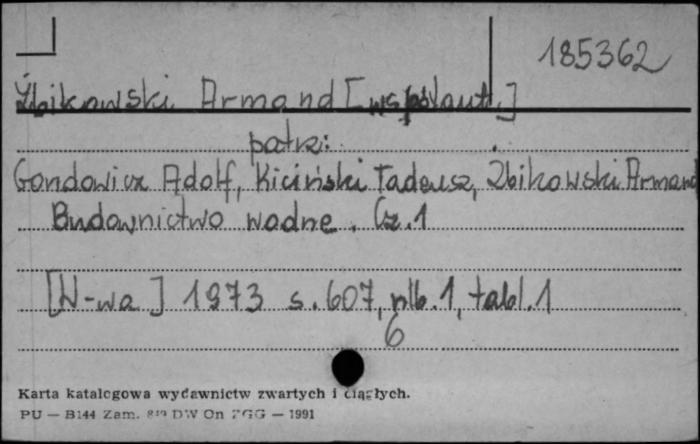 185362
Żbikowski Armand [współaut.]
patrz:
Gondowicz Adolf, Kiciński Tadeusz, Zbikowski Armand
Budownictwo wodne. Cz. 1
[W-wa] 1973 s. 607, nlb. 1, tabl. 1
6
Karta katalogowa wydawnictw zwartych i ciągłych.
PU — B144 Zam. DW On ZGG — 1991